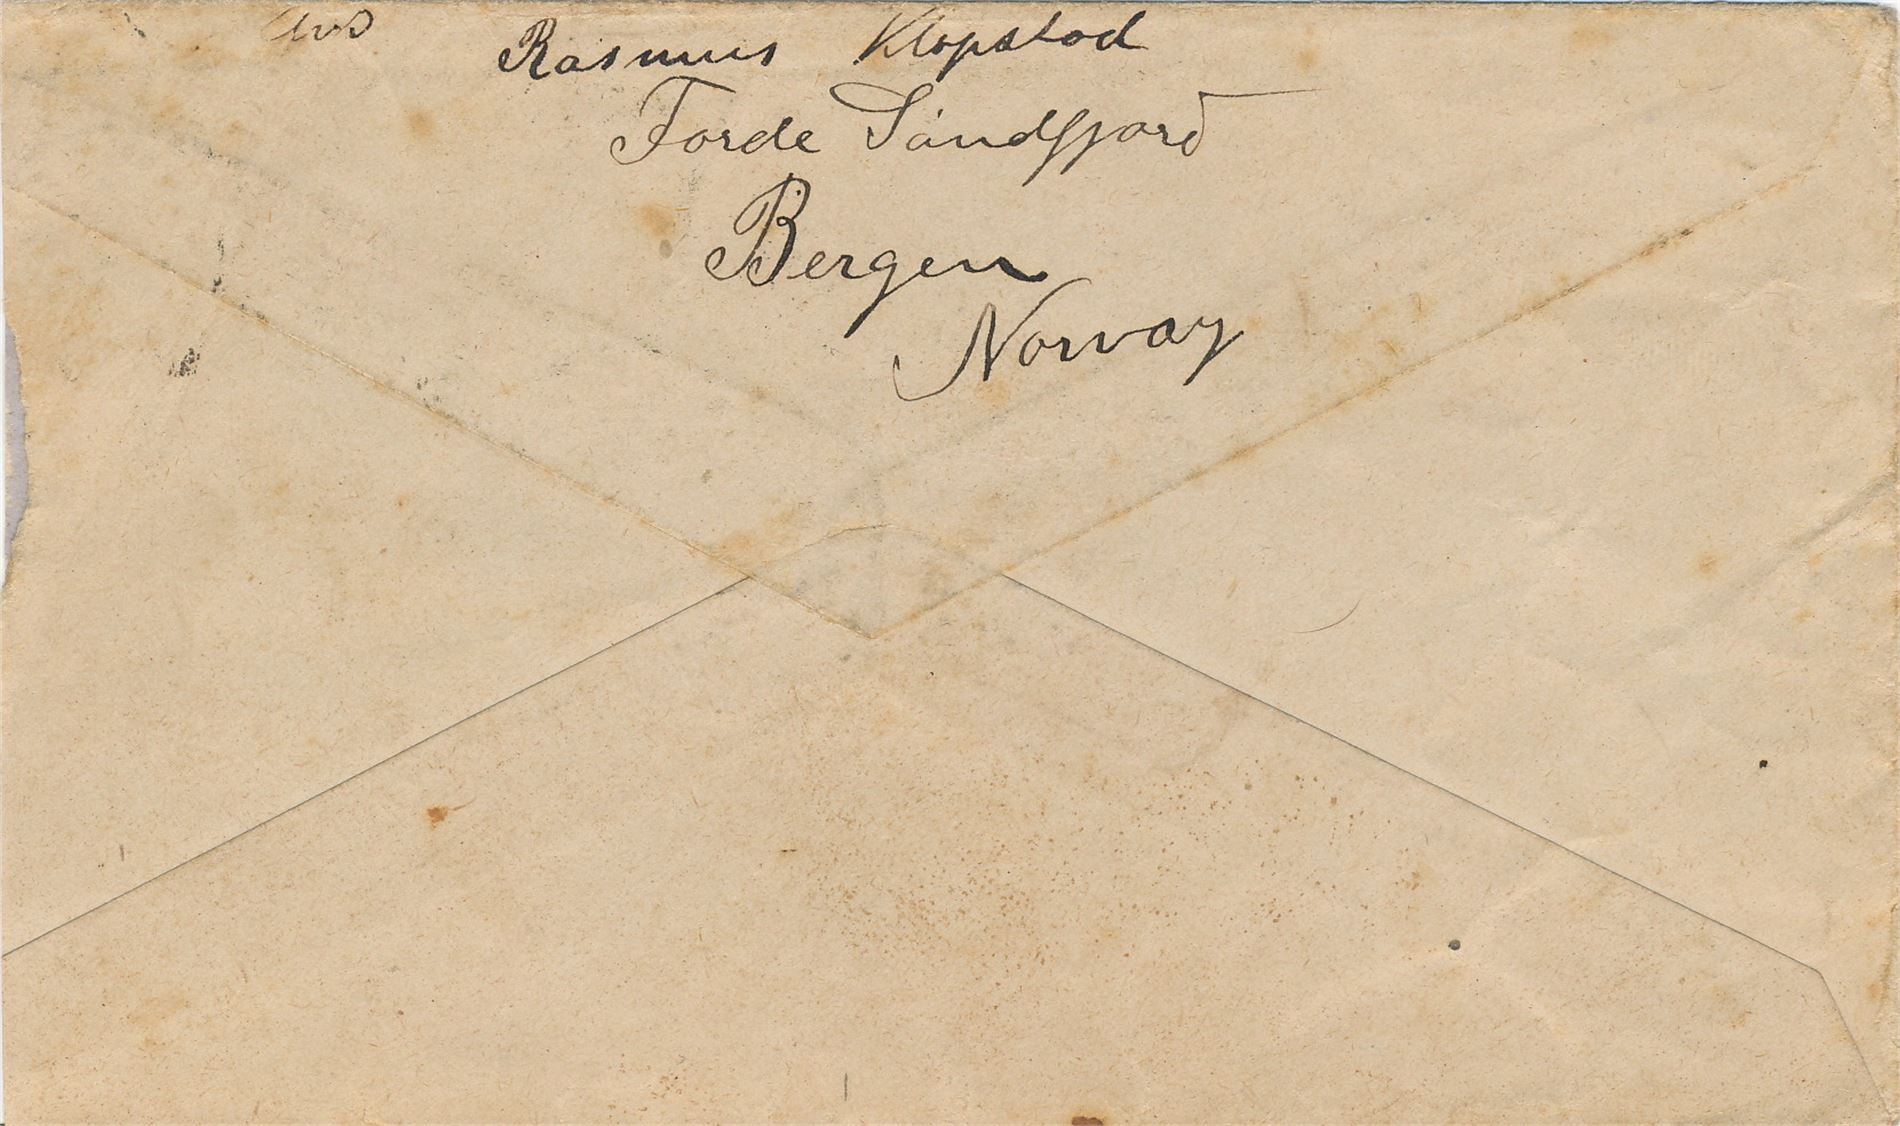 Avs Rasmus Klopstad
Forde Sandfjord
Bergen
Norway